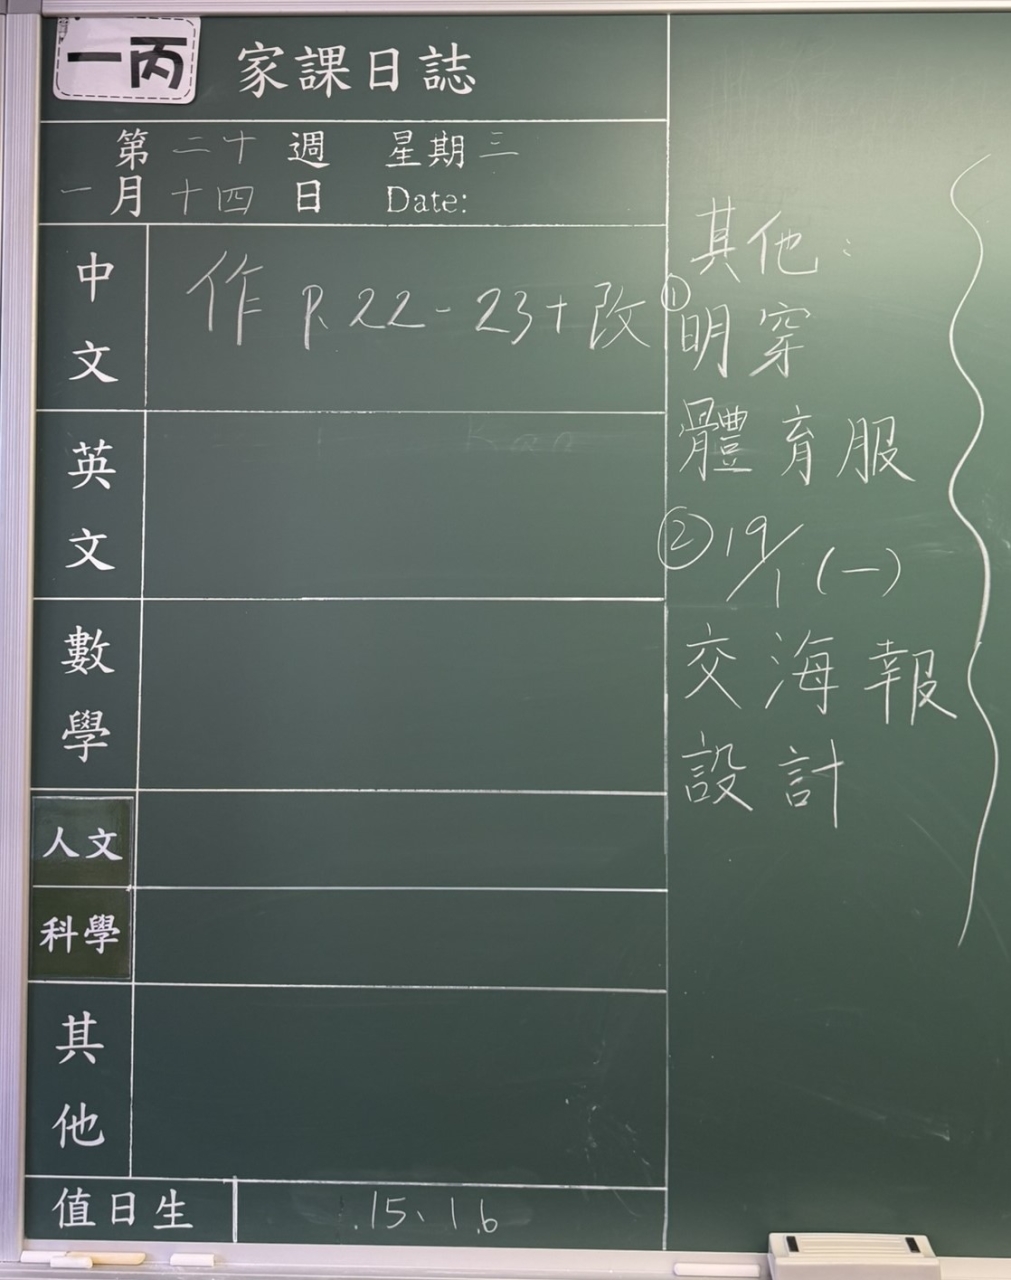 一丙
家課日誌
第二十週 星期三
一月十四日 Date:
中文
作 P.22-23+改
英文
數學
人文
科學
其他
值日生
15、16
其他：
①明穿
體育服
②19/1(一)
交海報
設計